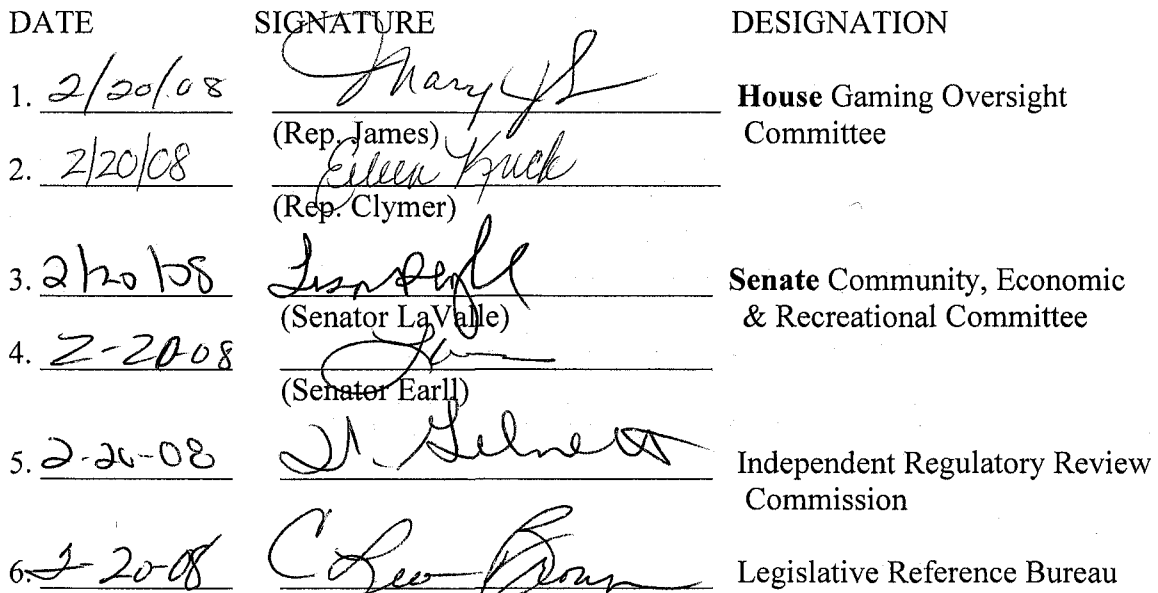 DATE SIGNATURE DESIGNATION
1. 2/20/08 Mary House Gaming Oversight
(Rep. James) Committee
2. 2/20/08 Eileen Kuck
(Rep. Clymer)
3. 2/20/08 Senate Community, Economic
(Senator LaValle) & Recreational Committee
4. 2-20-08
(Senator Earll)
5. 2-20-08 Independent Regulatory Review
Commission
6. 2-20-08 Brown Legislative Reference Bureau